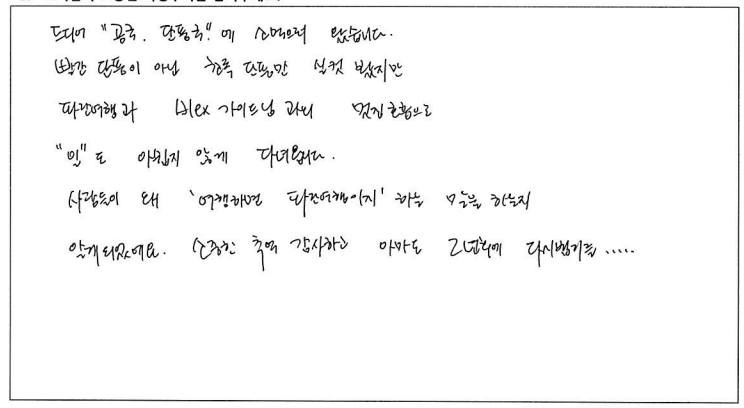 드디어 "공국. 단풍국"에 오게 되었습니다.
빨간 단풍이 아닌 초록 단풍만 실컷 봤지만
파란여행과 Alex 가이드님 과의 멋진 호흡으로
"일"도 아쉽지 않게 다녀옵니다.
사람들이 왜 '여행하면 파란여행이지' 하는 말을 하는지
알게되었어요. 소중한 추억 감사하고 아마도 2년후에 다시뵙기를 .....